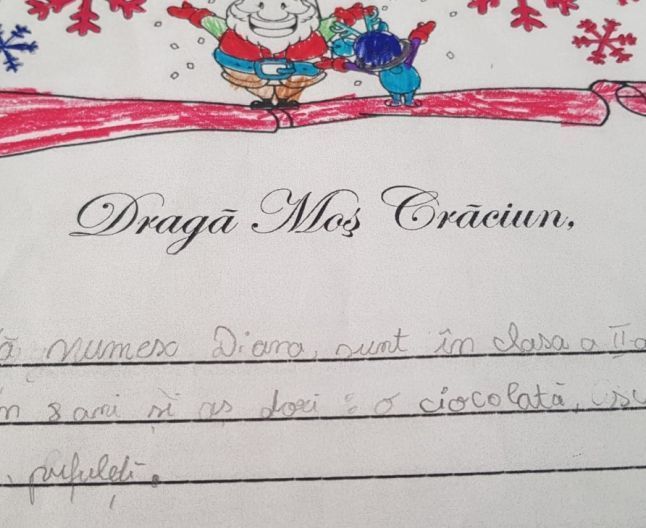 Dragă Moș Crăciun,
ă numesc Diana, sunt în clasa a II-a
n 8 ani și aș dori : o ciocolată,
pufuleți.